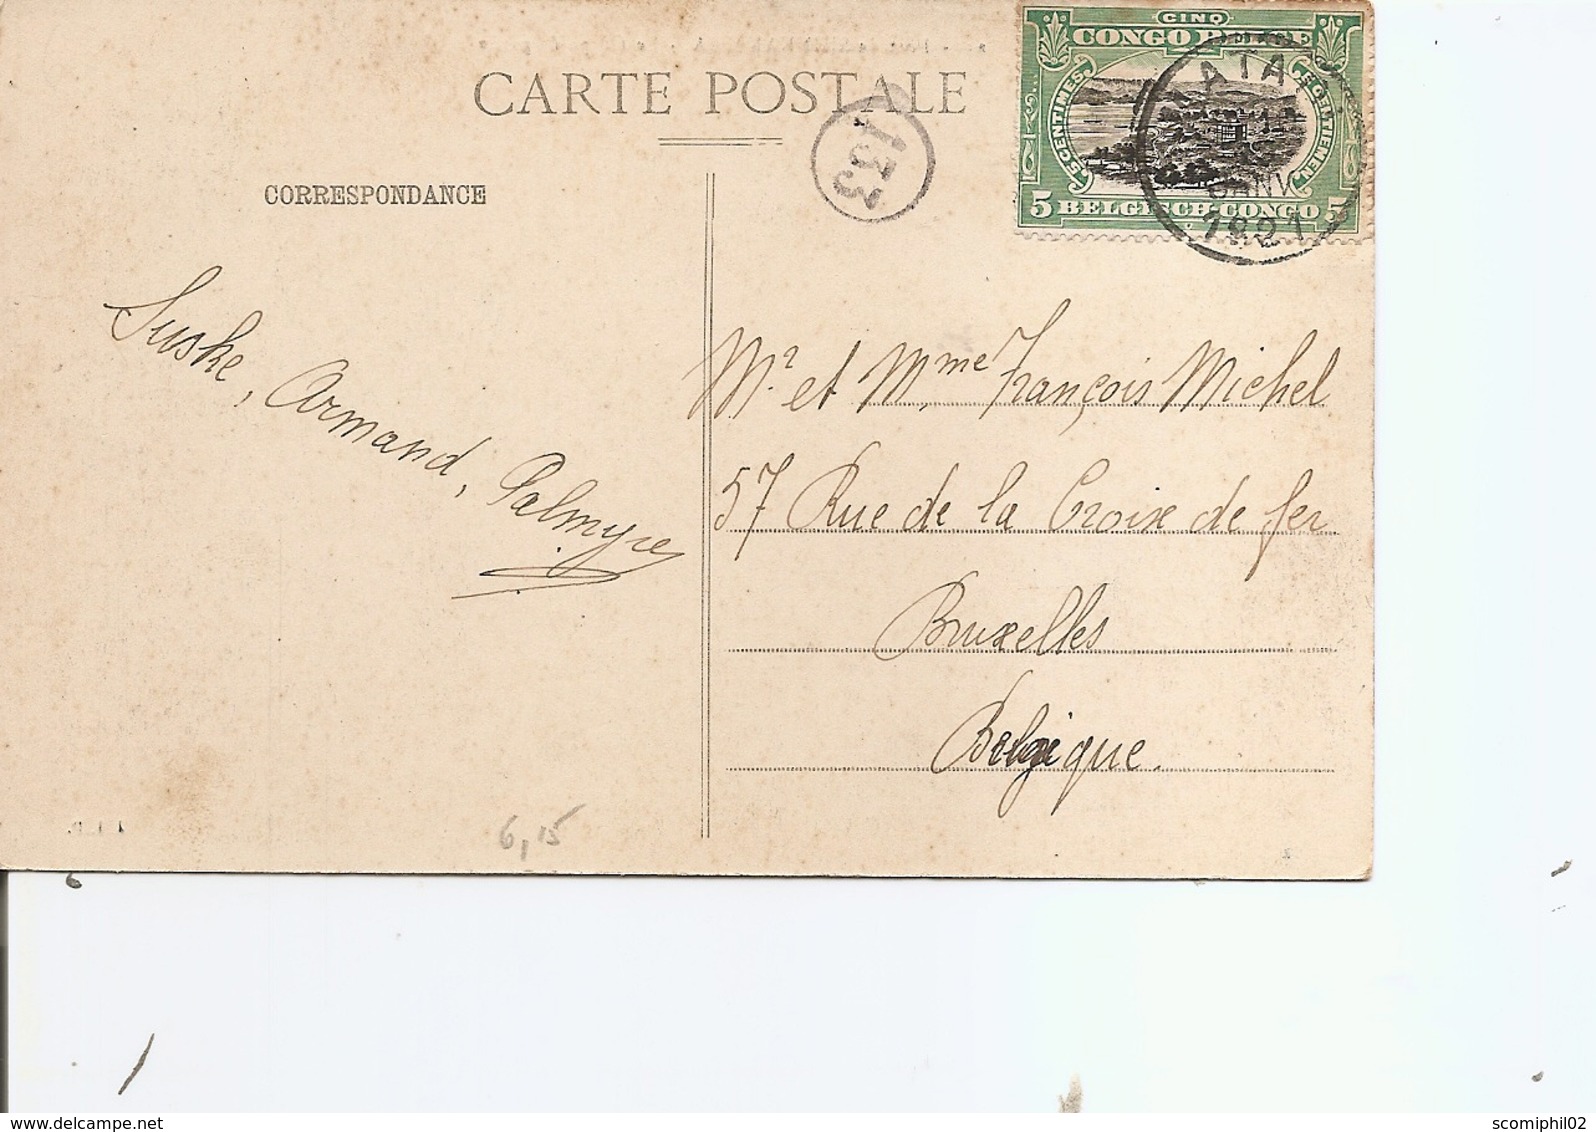 CARTE POSTALE
CORRESPONDANCE
133
CINQ
CONGO BELGE
5 CENTIMES
5 BELGISCH-CONGO 5
ATA
JANV
1921
Suske, Armand, Palmyre
Mr. et Mme. François Michel
57 Rue de la Croix de fer
Bruxelles
Belgique.
6,15
scomiphil02